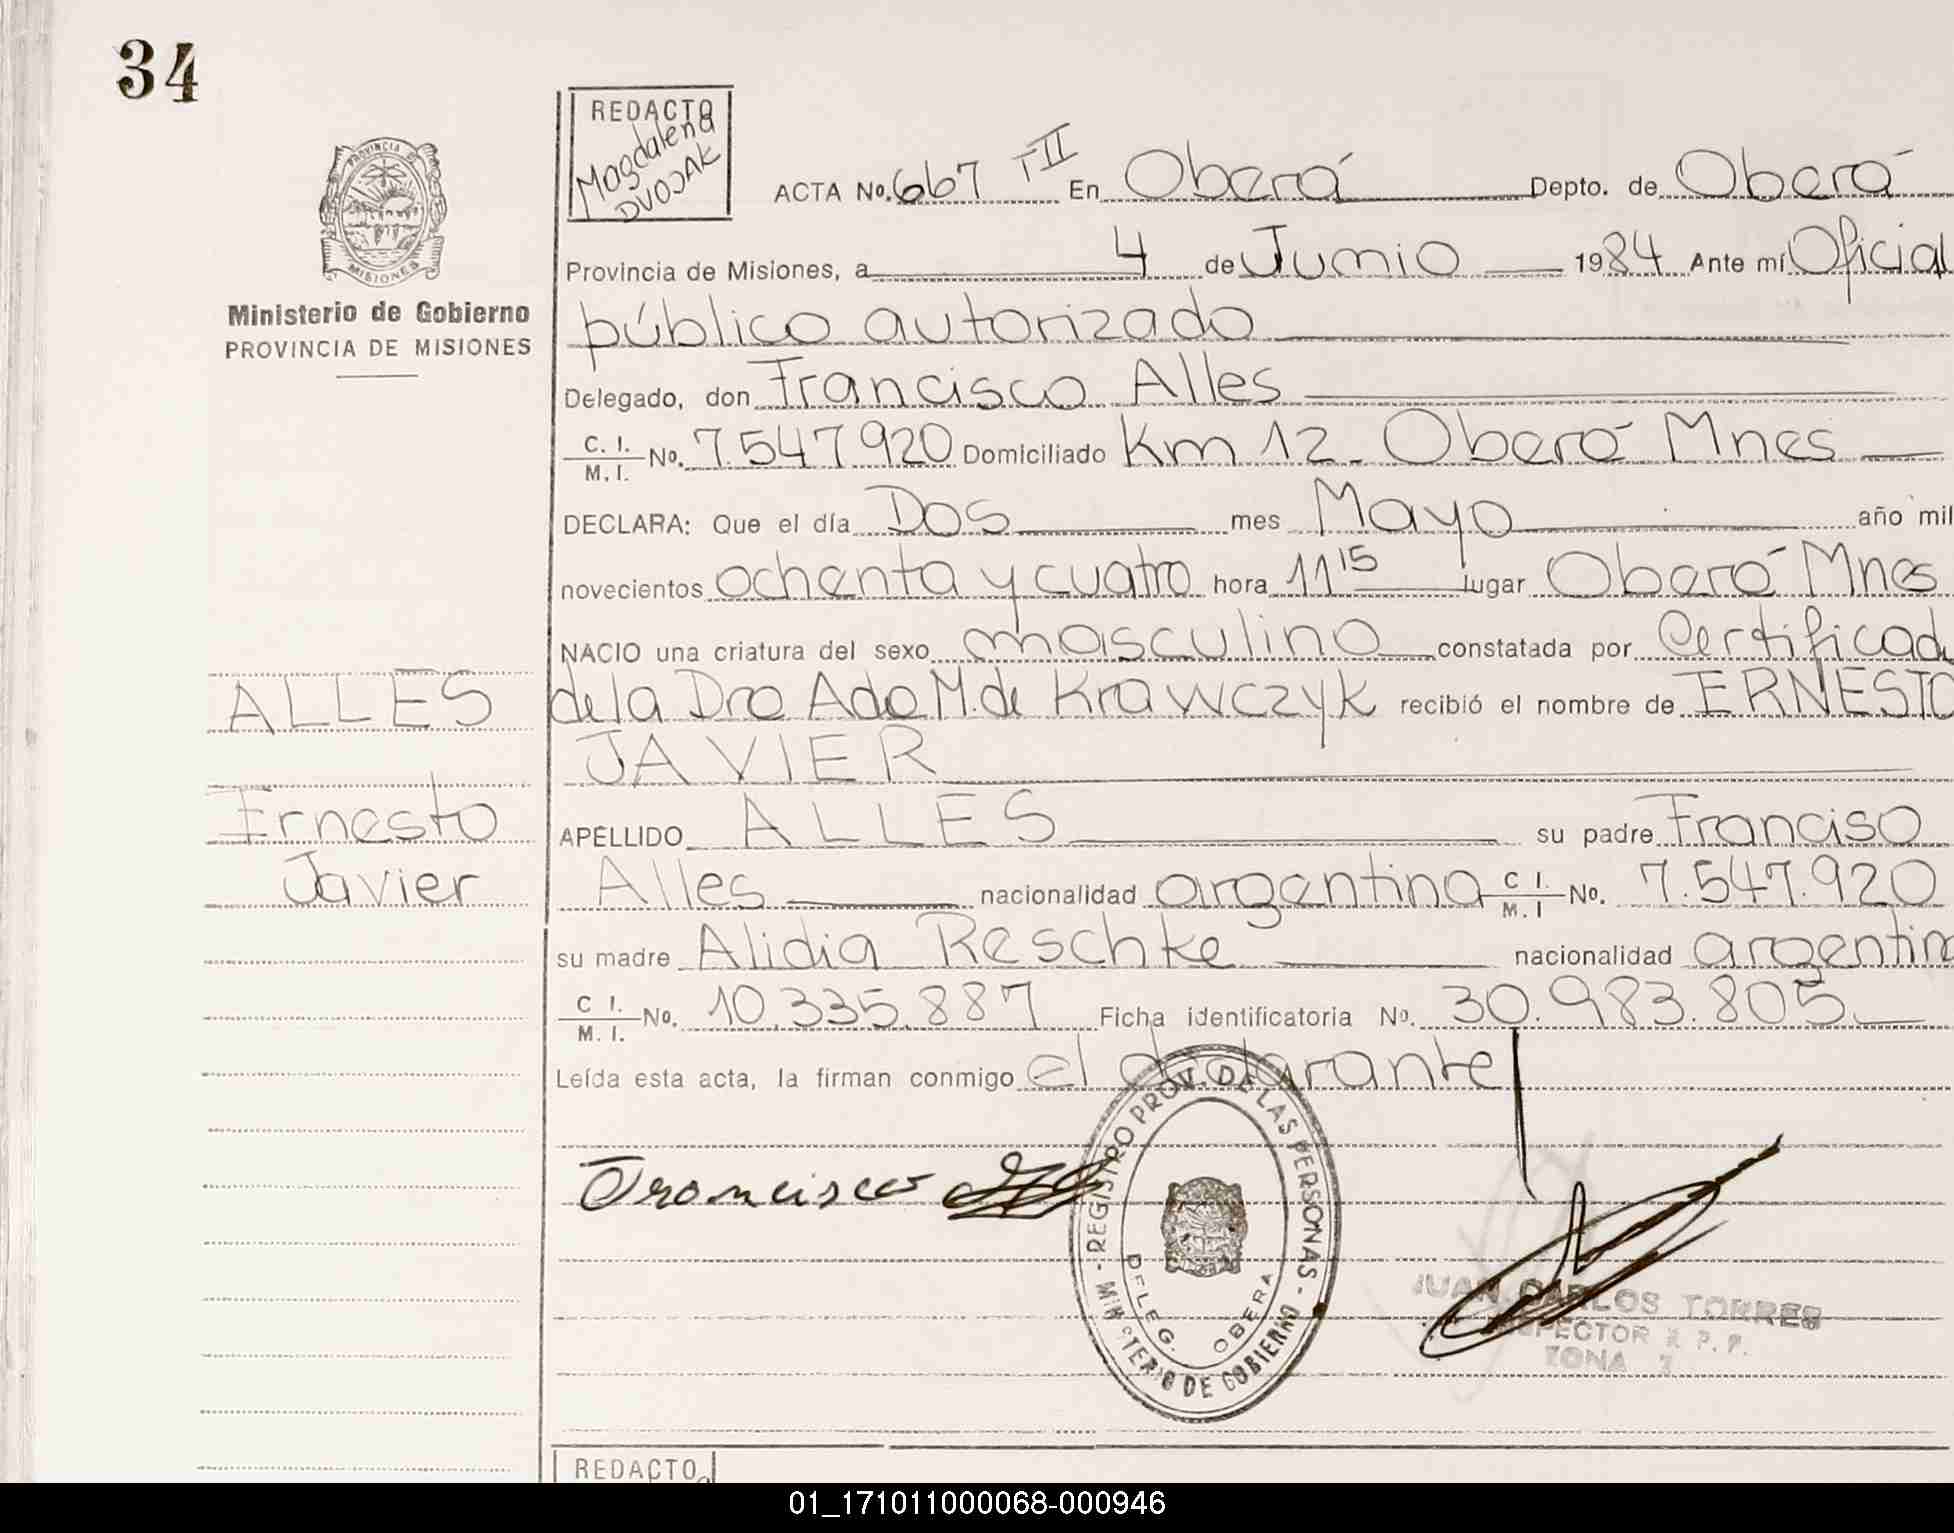 34
REDACTO
Magdalena
DVOJAK
PROVINCIA DE
MISIONES
Ministerio de Gobierno
PROVINCIA DE MISIONES
ACTA No. 667 TII En Oberá Depto. de Oberá
Provincia de Misiones, a 4 de Junio 1984 Ante mí Oficial
público autorizado
Delegado, don Francisco Alles
C. I. / M. I. No. 7.547.920 Domiciliado Km 12 - Oberá Mnes
DECLARA: Que el día Dos mes Mayo año mil
novecientos ochenta y cuatro hora 11 15 lugar Oberá Mnes
NACIO una criatura del sexo masculino constatada por Certificado
ALLES
de la Dra Ada M. de Krawczyk recibió el nombre de ERNESTO
JAVIER
Ernesto
Javier
APELLIDO ALLES su padre Franciso
Alles nacionalidad argentina C I. / M. I No. 7.547.920
su madre Alidia Reschke nacionalidad argentin
C I. / M. I. No. 10.335.887 Ficha identificatoria No. 30.983.805
Leída esta acta, la firman conmigo el declarante
Francisco
- REGISTRO PROV. DE LAS PERSONAS -
MINISTERIO DE GOBIERNO
DELEG. OBERA
JUAN CARLOS TORRES
INSPECTOR R. P. P.
ZONA
REDACTO
01_171011000068-000946